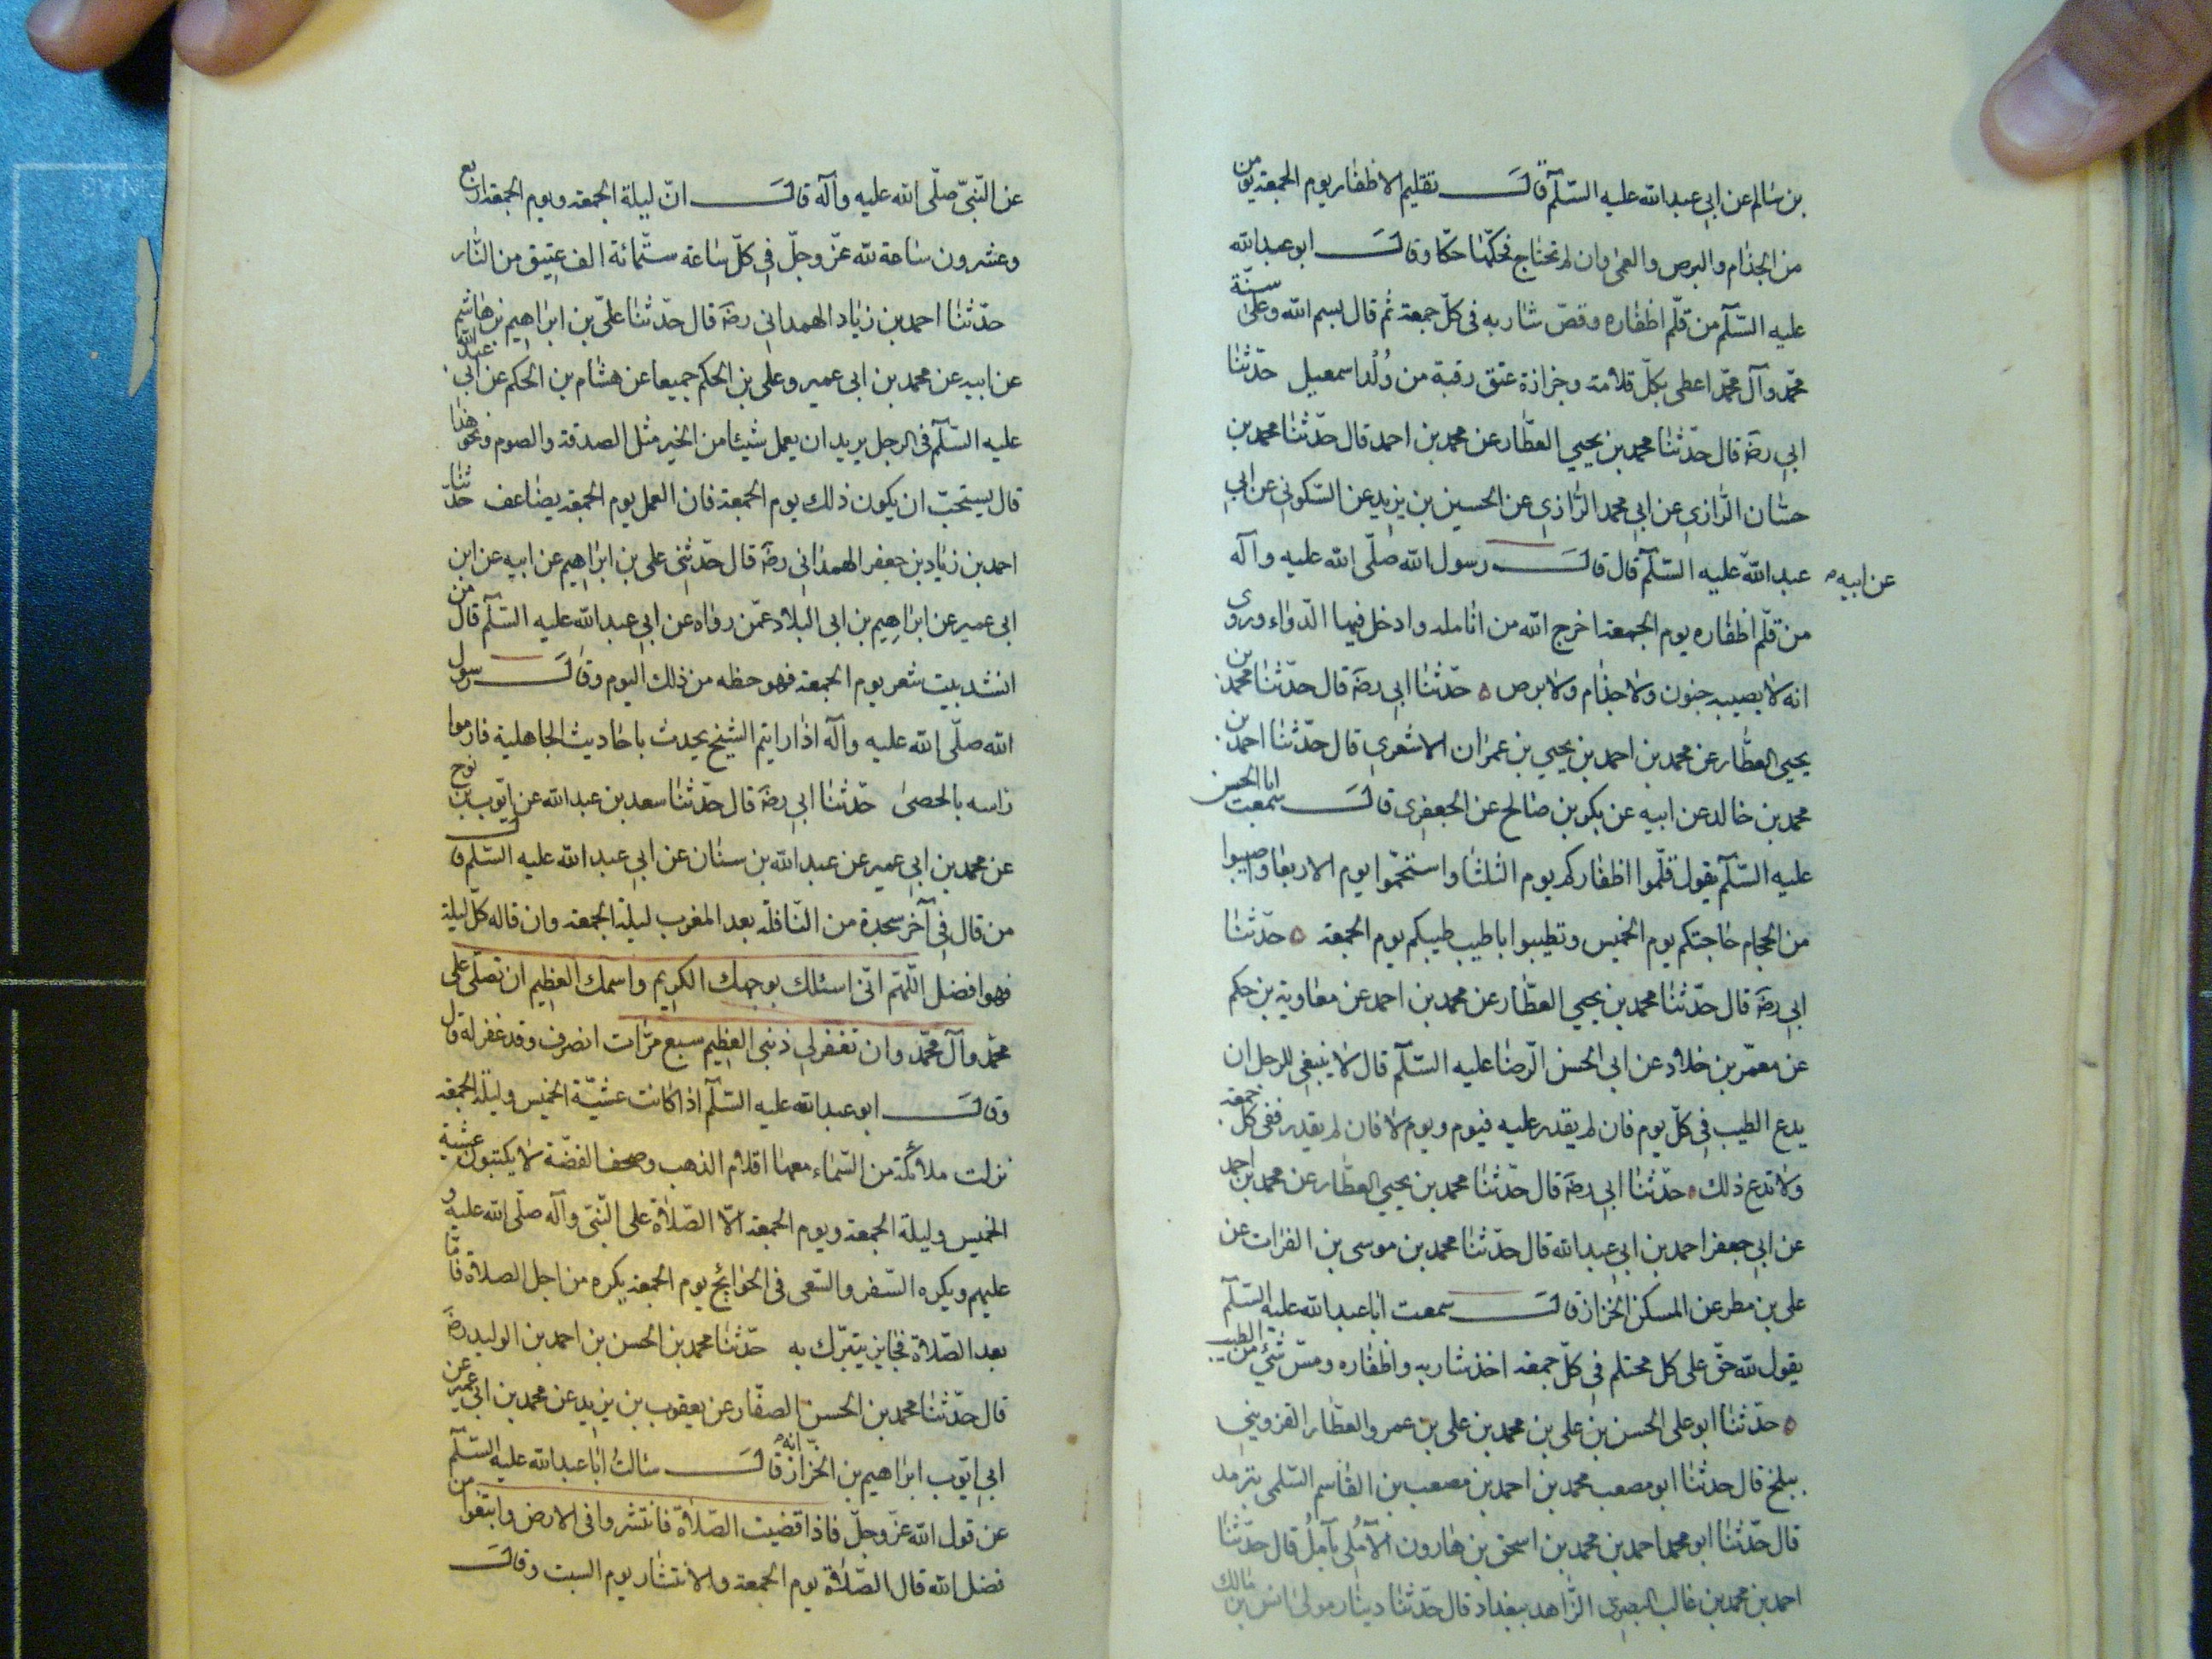 بن سالم عن ابي عبدالله عليه السّلام قال تقليم الاظفار يوم الجمعة يؤمن
من الجذام والبرص والعمى وان لم تحتاج فحكّها حكّا وقال ابو عبدالله
عليه السّلام من قلّم اظفاره وقصّ شاربه في كلّ جمعة ثم قال بسم الله وعلى سنّة
محمّد وآل محمّد اعطى بكلّ قلامة وجزازة عتق رقبة من ولد اسمعيل حدّثنا
ابي رضه قال حدّثنا محمد بن يحيى العطّار عن محمد بن احمد قال حدّثنا محمد بن
حسّان الرّازي عن ابي محمد الرّازي عن الحسين بن يزيد عن السّكوني عن ابي
عبدالله عليه السّلام قال قال رسول الله صلّى الله عليه وآله
عن ابيه
من قلّم اظفاره يوم الجمعة اخرج الله من انامله وادخل فيها الدّواء وروى
انه لا يصيبه جنون ولا جذام ولا برص ه حدّثنا ابي رضه قال حدّثنا محمد بن
يحيى العطّار عن محمد بن احمد بن يحيى بن عمران الاشعري قال حدّثنا احمد بن
محمد بن خالد عن ابيه عن بكر بن صالح عن الجعفري قال سمعت ابا الحسن
عليه السّلام يقول قلّموا اظفاركم يوم الثلثا واستحمّوا يوم الاربعا واصيبوا
من الحجام حاجتكم يوم الخميس وتطيبوا باطيب طيبكم يوم الجمعة ه حدّثنا
ابي رضه قال حدّثنا محمد بن يحيى العطّار عن محمد بن احمد عن معاوية بن حكم
عن معمّر بن خلاد عن ابي الحسن الرّضا عليه السّلام قال لا ينبغي للرجل ان
يدع الطيب في كلّ يوم فان لم يقدر عليه فيوم ويوم لا فان لم يقدر ففي كلّ جمعة
ولا تدع ذلك ه حدّثنا ابي رضه قال حدّثنا محمد بن يحيى العطّار عن محمد بن احمد
عن ابي جعفر احمد بن ابي عبدالله قال حدّثنا محمد بن موسى بن الفرات عن
علي بن مطر عن المسكن الخزاز قال سمعت ابا عبدالله عليه السّلام
يقول لله حقّ على كل محتلم في كلّ جمعة اخذ شاربه واظفاره ومسّ شئ من الطيب
ه حدّثنا ابو علي الحسن بن علي بن محمد بن علي بن عمرو العطّار القزويني
ببلخ قال حدثنا ابو مصعب محمد بن احمد بن مصعب بن القاسم السّلمي بترمد
قال حدّثنا ابو محمد احمد بن محمد بن اسحق بن هارون الآملي بآمل قال حدّثنا
احمد بن محمد بن غالب البصري الزّاهد ببغداد قال حدّثنا دينار مولى انس بن مالك
عن النّبيّ صلّى الله عليه وآله قال انّ ليلة الجمعة ويوم الجمعة اربع
وعشرون ساعة لله عزّ وجلّ في كلّ ساعة ستّمائة الف عتيق من النّار
حدّثنا احمد بن زياد الهمداني رضه قال حدّثنا عليّ بن ابراهيم بن هاشم
عن ابيه عن محمد بن ابي عمير وعلي بن الحكم جميعا عن هشام بن الحكم عن ابي عبدالله
عليه السّلام في الرجل يريد ان يعمل شيئا من الخير مثل الصدقة والصوم ونحو هذا
قال يستحبّ ان يكون ذلك يوم الجمعة فان العمل يوم الجمعة يضاعف حدّثنا
احمد بن زياد بن جعفر الهمداني رضه قال حدّثني علي بن ابراهيم عن ابيه عن ابن
ابي عمير عن ابراهيم بن ابي البلاد عمّن رواه عن ابي عبدالله عليه السّلام قال من
انشد بيت شعر يوم الجمعة فهو حظه من ذلك اليوم وقال رسول
الله صلّى الله عليه وآله اذا رايتم الشيخ يحدث باحاديث الجاهلية فارموا
راسه بالحصى حدّثنا ابي رضه قال حدّثنا سعد بن عبدالله عن ايّوب بن نوح
عن محمد بن ابي عمير عن عبد الله بن سنان عن ابي عبدالله عليه السّلم قال
من قال في آخر سجدة من النّافلة بعد المغرب ليلة الجمعة وان قاله كلّ ليلة
فهو افضل اللّهمّ انّي اسئلك بوجهك الكريم واسمك العظيم ان تصلّي على
محمّد وآل محمّد وان تغفر لي ذنبي العظيم سبع مرّات انصرف وقد غفر له قال
وقال ابو عبدالله عليه السّلام اذا كانت عشيّة الخميس وليلة الجمعة
نزلت ملائكة من السّماء معها اقلام الذهب وصحف الفضّة لا يكتبون عشية
الخميس وليلة الجمعة ويوم الجمعة الّا الصّلاة على النّبيّ وآله صلّى الله عليه و
عليهم ويكره السّفر والسّعي في الحوائج يوم الجمعة يكره من اجل الصلاة فامّا
بعد الصّلاة فجايز يتبّرك به حدّثنا محمد بن الحسن بن احمد بن الوليد رضه
قال حدّثنا محمد بن الحسن الصفّار عن يعقوب بن يزيد عن محمد بن ابي عمير عن
ابي ايّوب ابراهيم بن الخزّاز انّه قال سالت ابا عبدالله عليه السّلام
عن قول الله عزّ وجلّ فاذا قضيت الصّلاة فانتشروا في الارض وابتغوا من
فضل الله قال الصّلاة يوم الجمعة والانتشار يوم السبت وقال